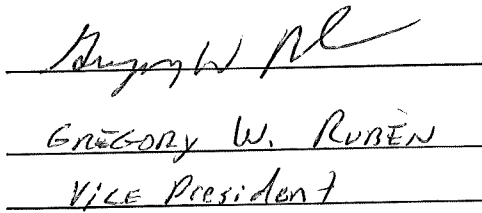 Gregory W
GREGORY W. RUBÈN
Vice President